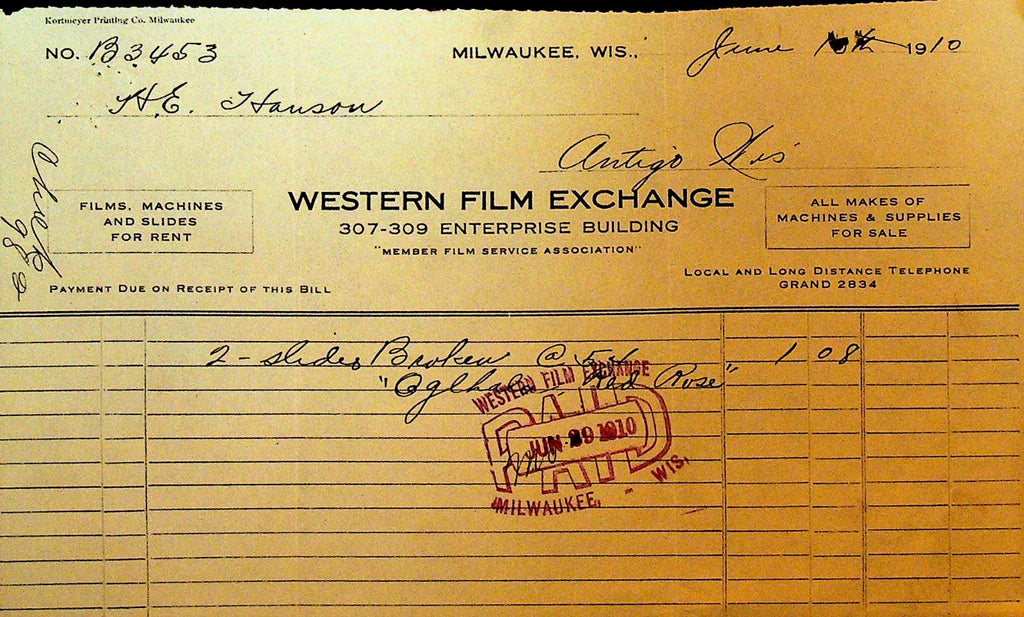 Kortmeyer Printing Co. Milwaukee
NO. B3453
MILWAUKEE, WIS., June 1910
H.E. Hanson
Antigo Wis
Check
982
FILMS, MACHINES
AND SLIDES
FOR RENT
WESTERN FILM EXCHANGE
307-309 ENTERPRISE BUILDING
"MEMBER FILM SERVICE ASSOCIATION"
ALL MAKES OF
MACHINES & SUPPLIES
FOR SALE
LOCAL AND LONG DISTANCE TELEPHONE
GRAND 2834
PAYMENT DUE ON RECEIPT OF THIS BILL
2 - slides Broken @ 54 1 08
" Red Rose"
WESTERN FILM EXCHANGE
PAID
JUN 29 1910
MILWAUKEE, - WIS.